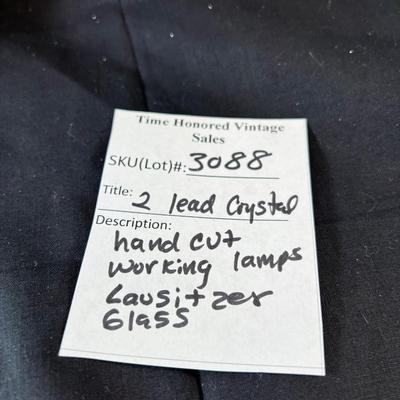 Time Honored Vintage
Sales
SKU(Lot)#: 3088
Title: 2 lead Crystal
Description:
hand cut
working lamps
Lausitzer
Glass